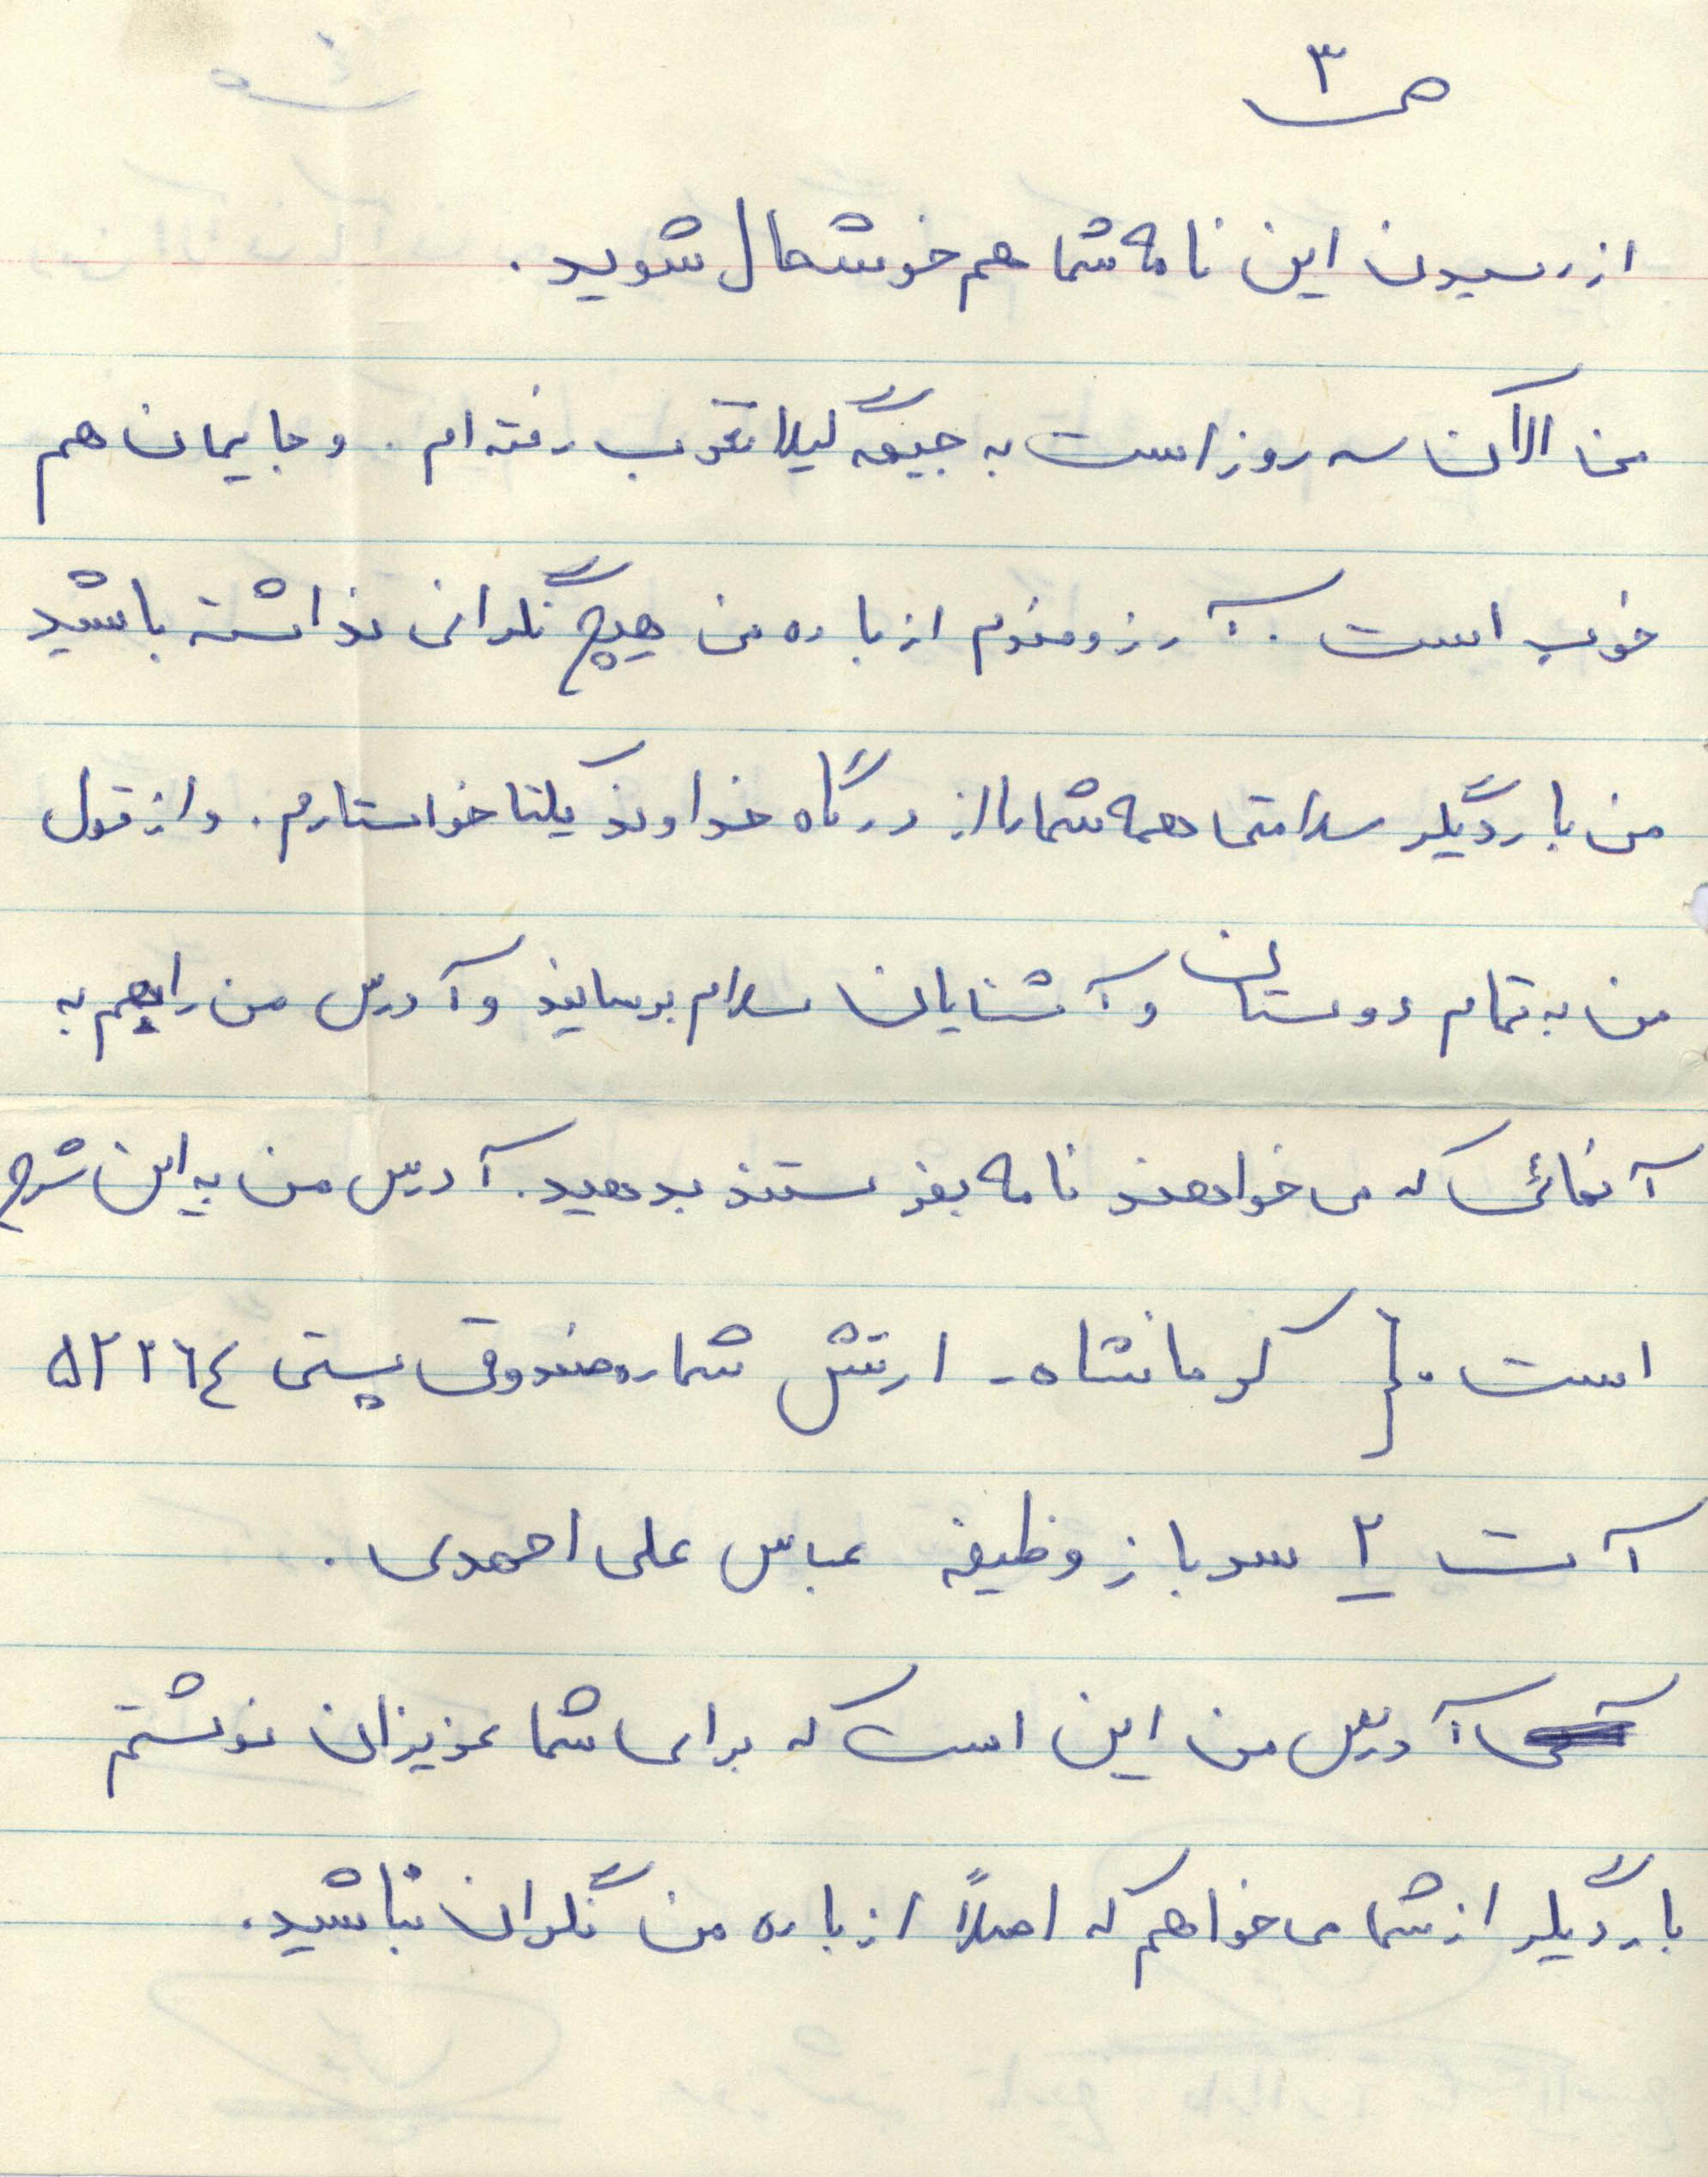 ص ۳
از رسیدن این نامه شما هم خوشحال شوید.
من الآن سه روز است به جبهه گیلانغرب رفته ام. و جایمان هم
خوب است. آرزومندم از باره من هیچ نگرانی نداشته باشید
من بار دیگر سلامتی همه شما را از درگاه خداوند یکتا خواستارم. و از قول
من به تمام دوستان و آشنایان سلام برسانید و آدرس من را هم به
آنهائی که می خواهند نامه بفرستند بدهید. آدرس من به این شرح
است. } کرمانشاه - ارتش شماره صندوق پستی ۵۲۳۶۴
آ ت ۲ سرباز وظیفه عباس علی احمدی.
آدرس من این است که برای شما عزیزان نوشتم
بار دیگر از شما می خواهم که اصلاً از باره من نگران نباشید.